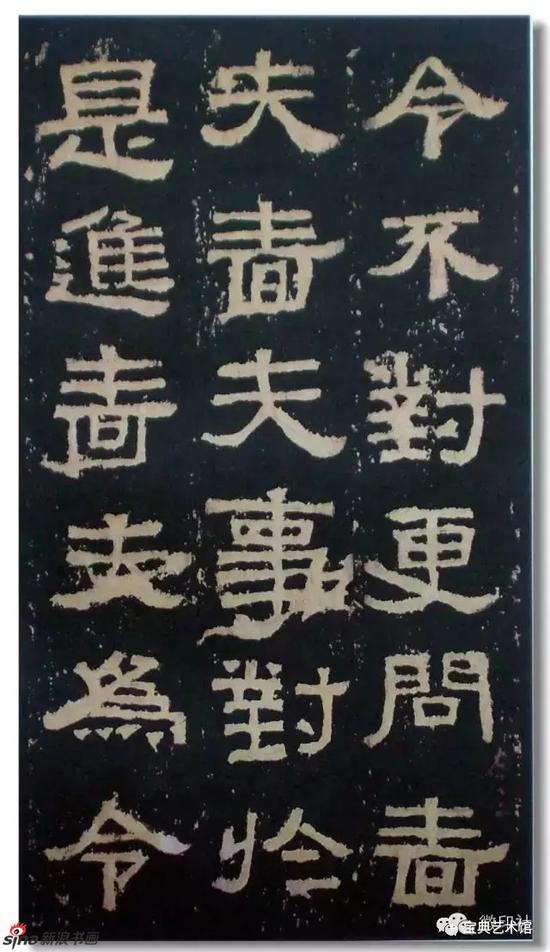 令不對更問嗇
夫嗇夫事對於
是進嗇夫為令
sina新浪书画
微印社
宝典艺术馆